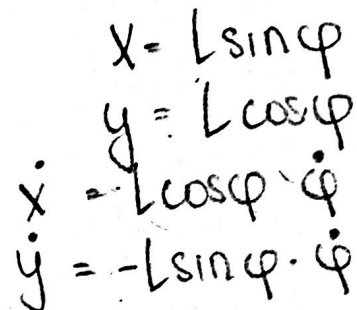 x = L sin φ
y = L cos φ
ẋ = L cos φ · φ̇
ẏ = -L sin φ · φ̇